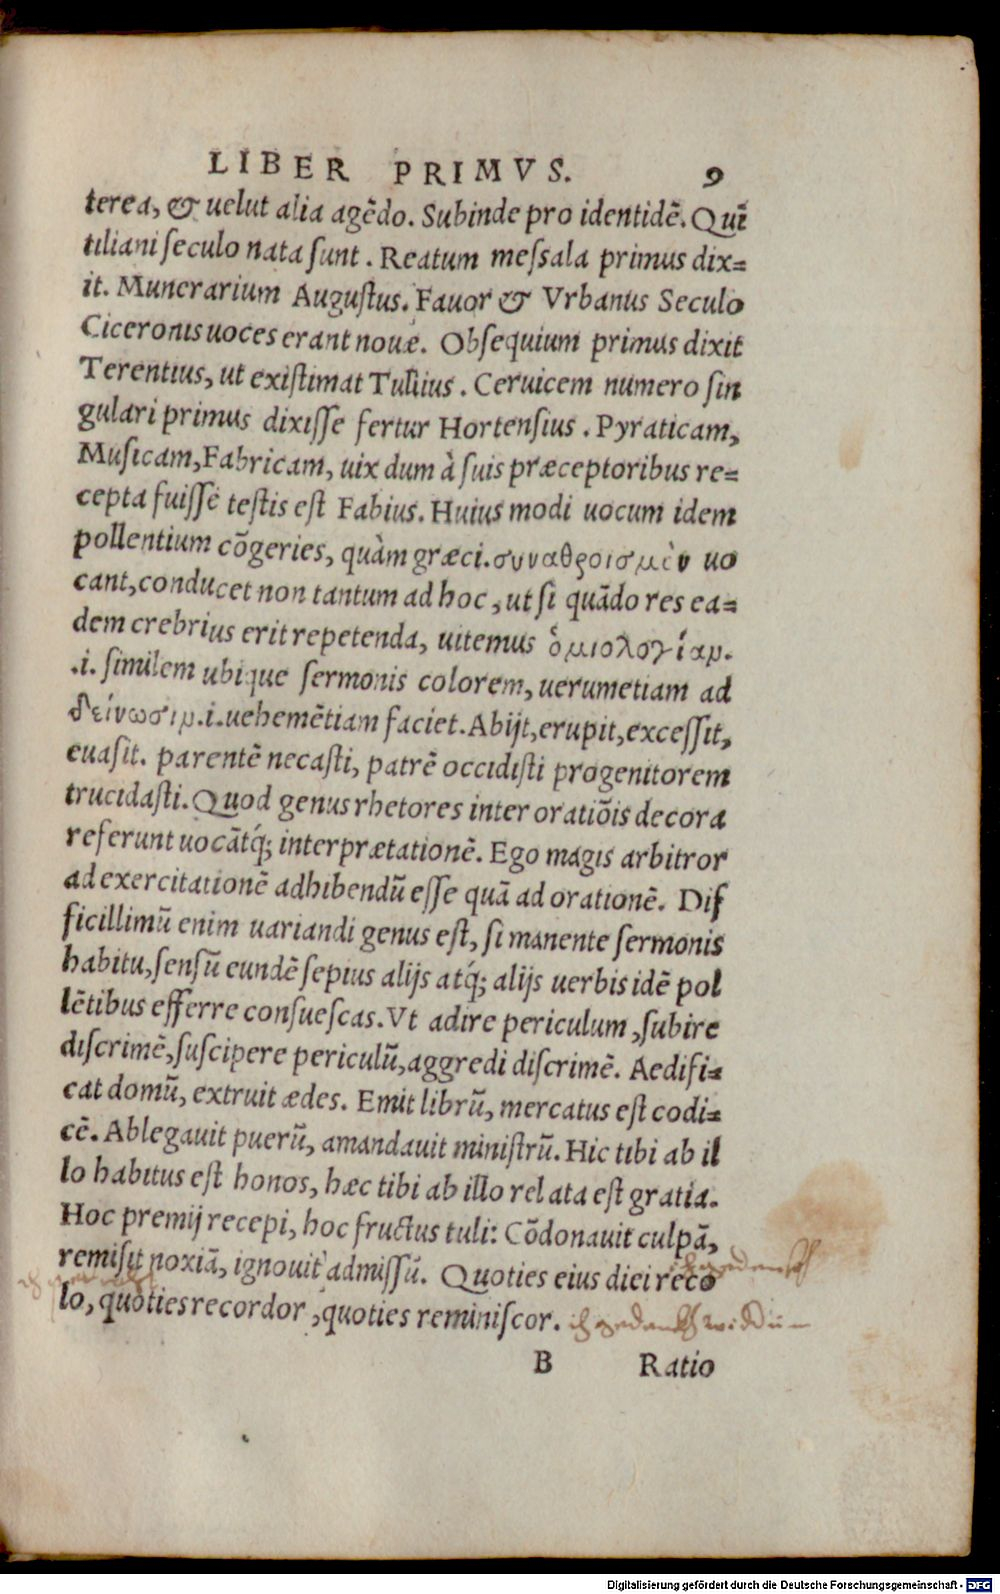 LIBER PRIMVS. 9
terea, & uelut alia agēdo. Subinde pro identidē. Quī
tiliani seculo nata sunt. Reatum messala primus dix=
it. Munerarium Augustus. Fauor & Vrbanus Seculo
Ciceronis uoces erant nouæ. Obsequium primus dixit
Terentius, ut existimat Tullius. Ceruicem numero sin
gulari primus dixisse fertur Hortensius. Pyraticam,
Musicam, Fabricam, uix dum à suis præceptoribus re=
cepta fuisse testis est Fabius. Huius modi uocum idem
pollentium cōgeries, quàm græci. συναθροισμὸν uo
cant, conducet non tantum ad hoc, ut si quādo res ea=
dem crebrius erit repetenda, uitemus ὁμιολογίαν.
.i. similem ubique sermonis colorem, uerumetiam ad
δείνωσιν.i. uehemētiam faciet. Abijt, erupit, excessit,
euasit. parentē necasti, patrē occidisti progenitorem
trucidasti. Quod genus rhetores inter oratiōis decora
referunt uocātq́; interpretationē. Ego magis arbitror
ad exercitationē adhibendū esse quā ad orationē. Dif
ficillimū enim uariandi genus est, si manente sermonis
habitu, sensū eundē sepius alijs atq́; alijs uerbis idē pol
lētibus efferre consuescas. Vt adire periculum, subire
discrimē, suscipere periculū, aggredi discrimē. Aedifi=
cat domū, extruit ædes. Emit librū, mercatus est codi=
cē. Ablegauit puerū, amandauit ministrū. Hic tibi ab il
lo habitus est honos, hæc tibi ab illo relata est gratia.
Hoc premij recepi, hoc fructus tuli: Cōdonauit culpā,
remisit noxiā, ignouit admissū. Quoties eius diei reco
lo, quoties recordor, quoties reminiscor.
B Ratio
Digitalisierung gefördert durch die Deutsche Forschungsgemeinschaft - DFG